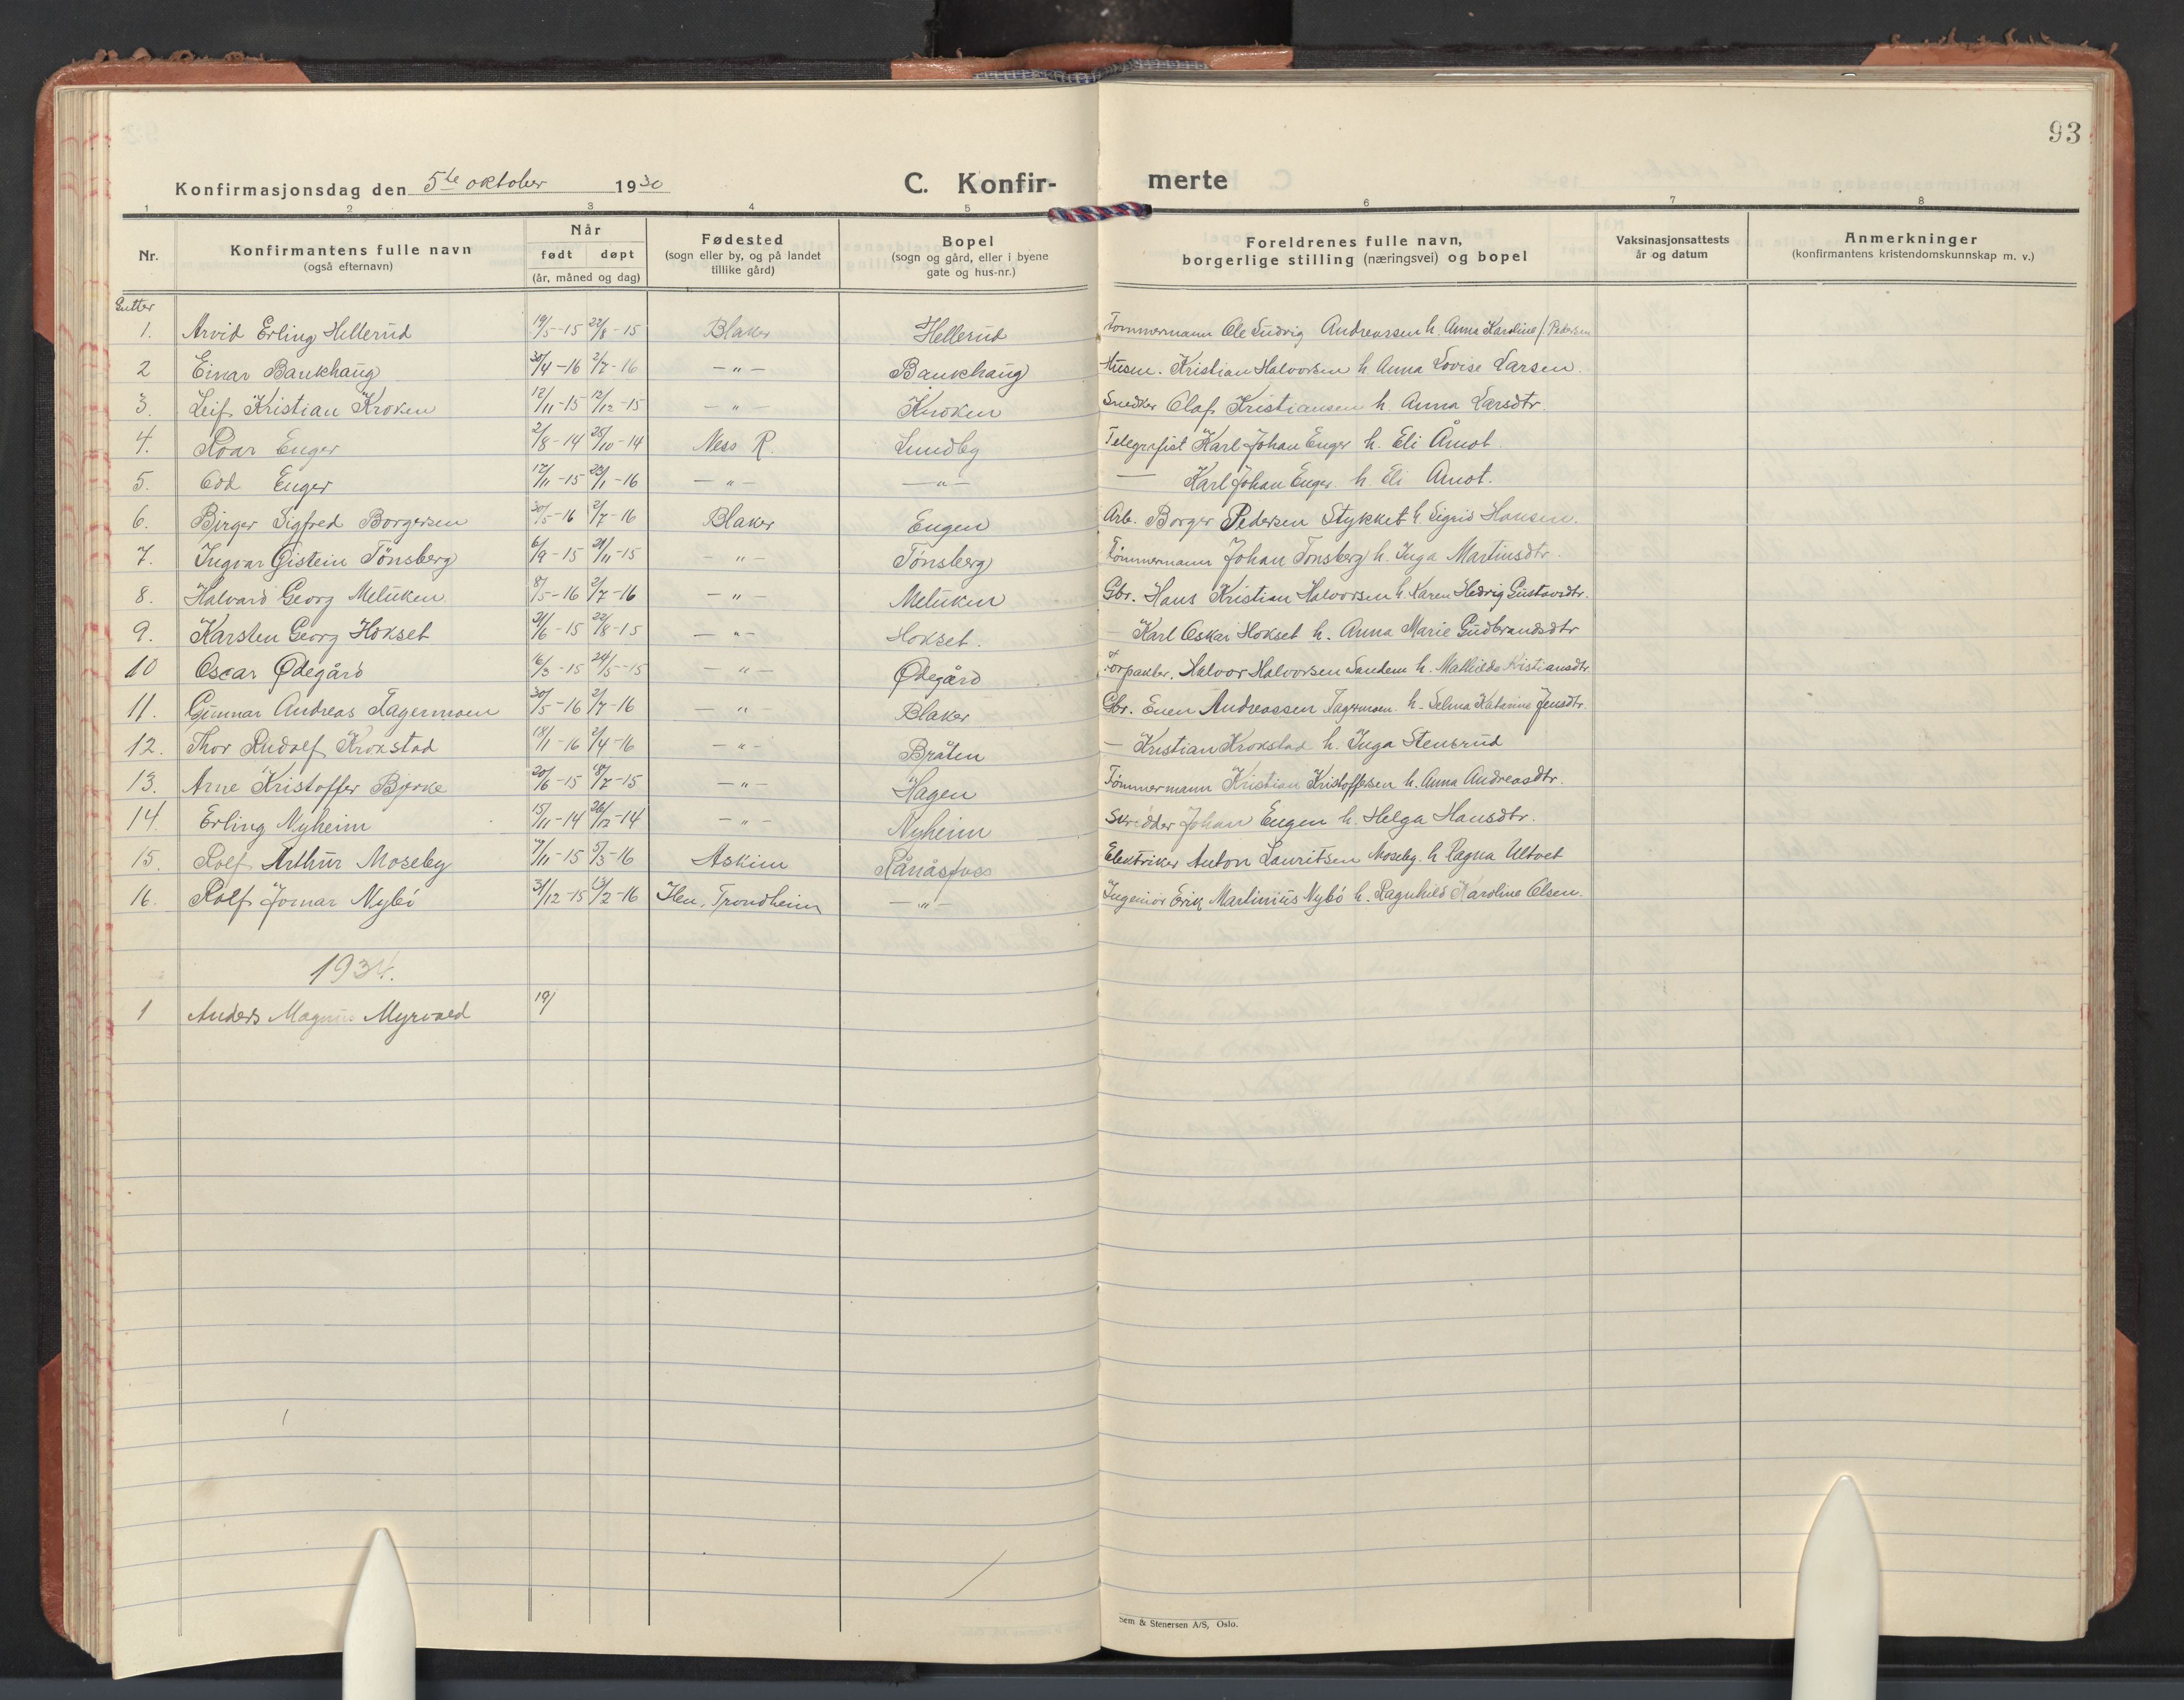 93
Konfirmasjonsdag den 5te oktober 1930 C. Konfir- merte
1 2 3 4 5 6 7 8
Nr. Konfirmantens fulle navn (også efternavn) Når født døpt (år, måned og dag) Fødested (sogn eller by, og på landet tillike gård) Bopel (sogn og gård, eller i byene gate og hus-nr.) Foreldrenes fulle navn, borgerlige stilling (næringsvei) og bopel Vaksinasjonsattests år og datum Anmerkninger (konfirmantens kristendomskunnskap m. v.)
Gutter
1. Arvid Erling Hellerud 19/5-15 22/8-15 Blaker Hellerud Tømmermann Ole Ludvig Andreassen h. Anna Karoline Pedersen
2 Einar Baukhaug 30/4-16 2/7-16 —"— Baukhaug Husm. Kristian Halvorsen h. Anna Lovise Larsen.
3. Leif Kristian Kroken 12/11-15 12/12-15 —"— Kroken Snedker Olaf Kristiansen h. Anna Larsdtr.
4. Roar Enger 2/8-14 25/10-14 Ness R. Lundby Telegrafist Karl Johan Enger h. Eli Åmot.
5. Odd Enger 17/11-15 /1-16 —"— —"— — Karl Johan Enger h. Eli Amot.
6. Birger Sigfred Borgersen 30/5-16 2/7-16 Blaker Engen Arb. Borger Pedersen Stykket h. Sigrid Hansen.
7. Ingvar Øistein Tönsberg 6/9-15 21/11-15 —"— Tönsberg Tömmermann Johan Tönsberg h. Inga Martinsdtr.
8. Halvard Georg Meliken 8/5-16 2/7-16 —"— Meliken Gbr. Hans Kristian Halvorsen h. Karen Hedvig Gustavdtr.
9. Karsten Georg Hokset 21/6-15 22/8-15 —"— Hokset. — Karl Oskar Hokset h. Anna Marie Gudbrandsdtr
10 Oscar Ødegård 16/3-15 24/5-15 —"— Ødegård Forpakter. Halvor Halvorsen Sandem h. Mathilde Kristiansdtr.
11. Gunnar Andreas Fagermoen 30/5-16 2/7-16 —"— Blaker Gbr. Even Andreassen Fagermoen. h. Selma Katarine Jensdtr.
12. Thor Rudolf Krokstad 18/1-16 2/4-16 —"— Bråten — Kristian Krokstad h. Inga Stensrud
13. Arne Kristoffer Bjerke 20/6-15 18/7-15 —"— Hagen Tömmermann Kristian Kristoffersen h. Anna Andreasdtr.
14. Erling Nyheim 15/11-14 26/12-14 —"— Nyheim Skredder Johan Engen h. Helga Hansdtr.
15. Rolf Arthur Moseby 7/11-15 5/3-16 Askim Rånåsfoss Elektriker Anton Lauritsen Moseby. h Ragna Ultvet
16. Rolf Jomar Nybö 31/12-15 13/2-16 Ilen, Trondheim —"— Ingeniör Erik Martinius Nybö h. Ragnhild Karoline Olsen.
1934.
1 Anders Magnus Myrvold 19/
Sem & Stenersen A/S, Oslo.